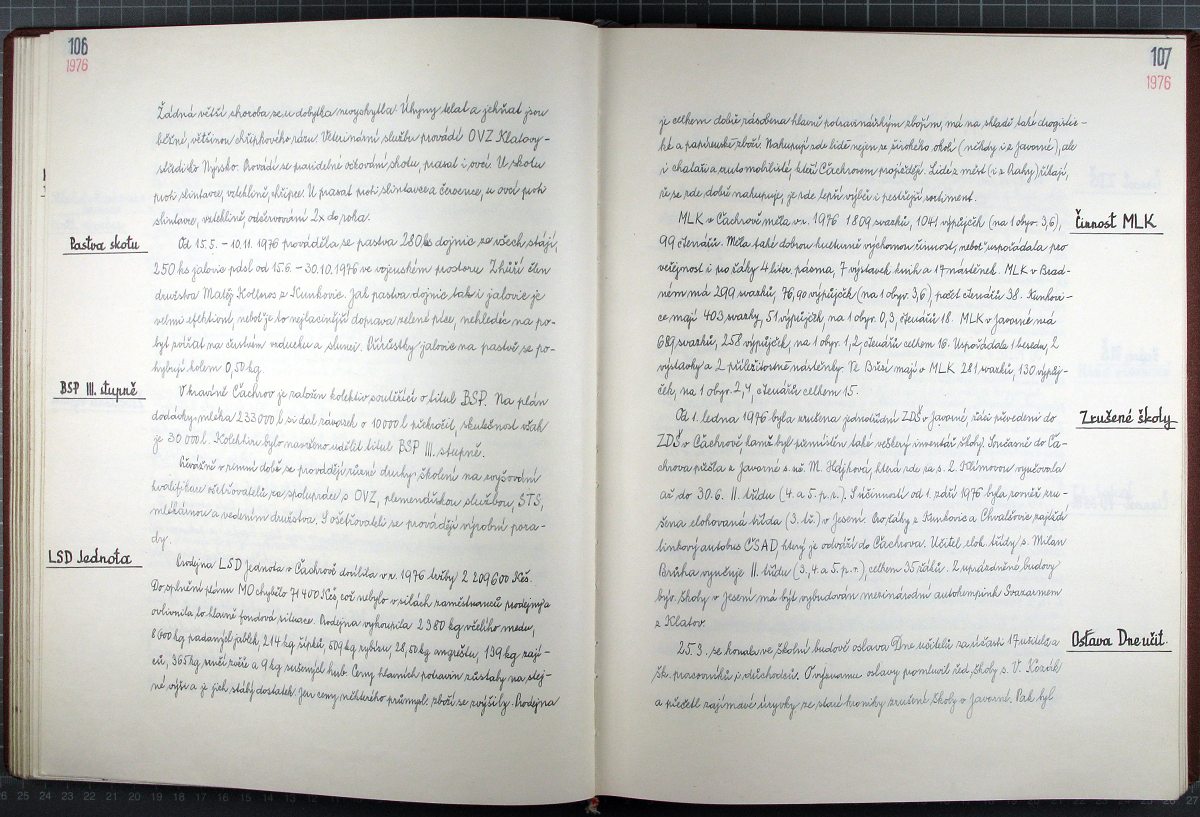 106
1976
Žádná větší choroba se u dobytka nevyskytla. Úhyny telat a jehňat jsou
běžné, většinou chřipkového rázu. Veterinární službu provádí OVZ Klatovy-
středisko Nýrsko. Provádí se pravidelné očkování skotu, prasat i ovcí. U skotu
proti slintavce, vzteklině, chřipce. U prasat proti slintavce a července, u ovcí proti
slintavce, vzteklině, odčervování 2x do roka.
Pastva skotu
Od 15.5. – 10.11. 1976 prováděla se pastva 280 ks dojnic ze všech stájí,
250 ks jalovic pásl od 15.6. – 30.10. 1976 ve vojenském prostoru Zhůří člen
družstva Matěj Kolleros z Kunkovic. Jak pastva dojnic tak i jalovic je
velmi efektivní, neboť je to nejlacinější doprava zelené píce, nehledíc na po-
byt zvířat na čerstvém vzduchu a slunci. Přírůstky jalovic na pastvě se po-
hybují kolem 0,50 kg.
BSP III. stupně
V kravíně Čachrov je založen kolektiv soutěžící o titul BSP. Na plán
dodávky mléka 233 000 l si dal závazek o 10 000 l překročit, skutečnost však
je 30 000 l. Kolektivu bylo navrženo udělit titul BSP III. stupně.
Převážně v zimní době se provádějí různé druhy školení na zvyšování
kvalifikace ošetřovatelů za spolupráce s OVZ, plemenářskou službou, STS,
mlékárnou a vedením družstva. S ošetřovateli se provádějí výrobní pora-
dy.
LSD Jednota
Prodejna LSD Jednota v Čachrově docílila v r. 1976 tržby 2 209 600 Kčs.
Do splnění plánu MO chybělo 71 400 Kčs, což nebylo v silách zaměstnanců prodejny a
ovlivnila to hlavně fondová situace. Prodejna vykoupila 2 380 kg včelího medu,
8 600 kg padaných jablek, 214 kg šípků, 509 kg rybízu, 28,50 kg angreštu, 139 kg zají-
ců, 365 kg srnčí zvěře a 9 kg sušených hub. Ceny hlavních potravin zůstaly na stej-
né výši a je jich stálý dostatek. Jen ceny některého průmysl. zboží se zvýšily. Prodejna
107
1976
je celkem dobře zásobena hlavně potravinářským zbožím, má na skladě také drogistic-
ké a papírenské zboží. Nakupují zde lidé nejen ze širokého okolí (někdy i z Javorné), ale
i chataři a automobilisté, kteří Čachrovem projíždějí. Lidé z měst (i z Prahy) říkají,
že se zde dobře nakupuje, je zde lepší výběr i pestřejší sortiment.
Činnost MLK
MLK v Čachrově měla v r. 1976 1 809 svazků, 1041 výpůjček (na 1 obyv. 3,6),
99 čtenářů. Měla také dobrou kulturně výchovnou činnost, neboť uspořádala pro
veřejnost i pro žáky 4 liter. pásma, 7 výstavek knih a 17 nástěnek. MLK v Brad-
ném má 299 svazků, 76,90 výpůjček (na 1 obyv. 3,6), počet čtenářů 38. Kunkovi-
ce mají 403 svazky, 51 výpůjček, na 1 obyv. 0,3, čtenářů 18. MLK v Javorné má
687 svazků, 258 výpůjček, na 1 obyv. 1,2, čtenářů celkem 16. Uspořádala 1 besedu, 2
výstavky a 2 příležitostné nástěnky. Ve Březí mají v MLK 281 svazků, 130 výpůj-
ček, na 1 obyv. 2,4, čtenářů celkem 15.
Zrušené školy
Od 1. ledna 1976 byla zrušena jednotřídní ZDŠ v Javorné, žáci převedeni do
ZDŠ v Čachrově, kamž byl přemístěn také veškerý inventář školy. Současně do Ča-
chrova přišla z Javorné s. uč. M. Hájková, která zde za s. Z. Klímovou vyučovala
až do 30.6. II. třídu (4. a 5. p. r.). S účinností od 1. září 1976 byla rovněž zru-
šena elokovaná třída (3. tř.) v Jesení. Pro žáky z Kunkovic a Chvalšovic zajíždí
linkový autobus ČSAD, který je odváží do Čachrova. Učitel elok. třídy s. Milan
Brůha vyučuje II. třídu (3., 4. a 5. p. r.), celkem 35 žáků. Z uprázdněné budovy
býv. školy v Jesení má být vybudován mezinárodní autokempink Svazarmem
z Klatov.
Oslava Dne učit.
25.3. se konala ve školní budově oslava Dne učitelů za účasti 17 učitelů a
šk. pracovníků i důchodců. O významu oslavy promluvil řed. školy s. V. Kozák
a přečetl zajímavé úryvky ze staré kroniky zrušené školy v Javorné. Pak byl